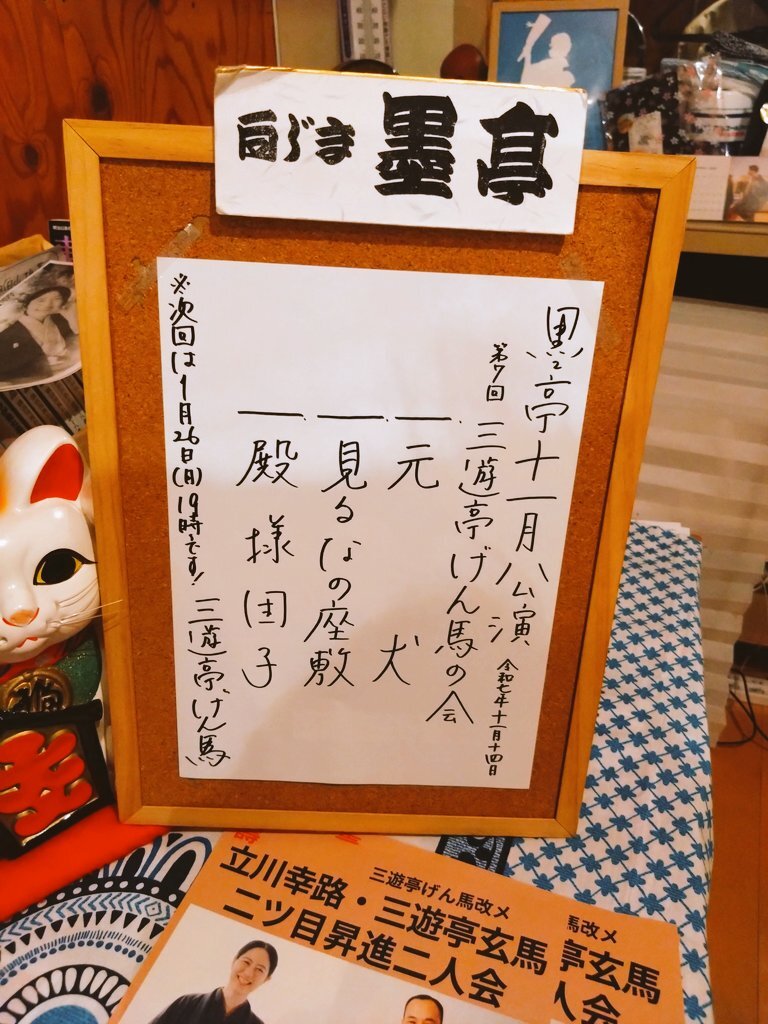 向じま 墨亭
墨亭十一月公演 令和七年十一月十四日
第7回 三遊亭げん馬の会
一 元犬
一 見るなの座敷
一 殿様団子
※次回は1月26日(月)19時です! 三遊亭げん馬
三遊亭げん馬改メ
立川幸路・三遊亭玄馬
二ツ目昇進二人会
馬改メ
亭玄馬
人会